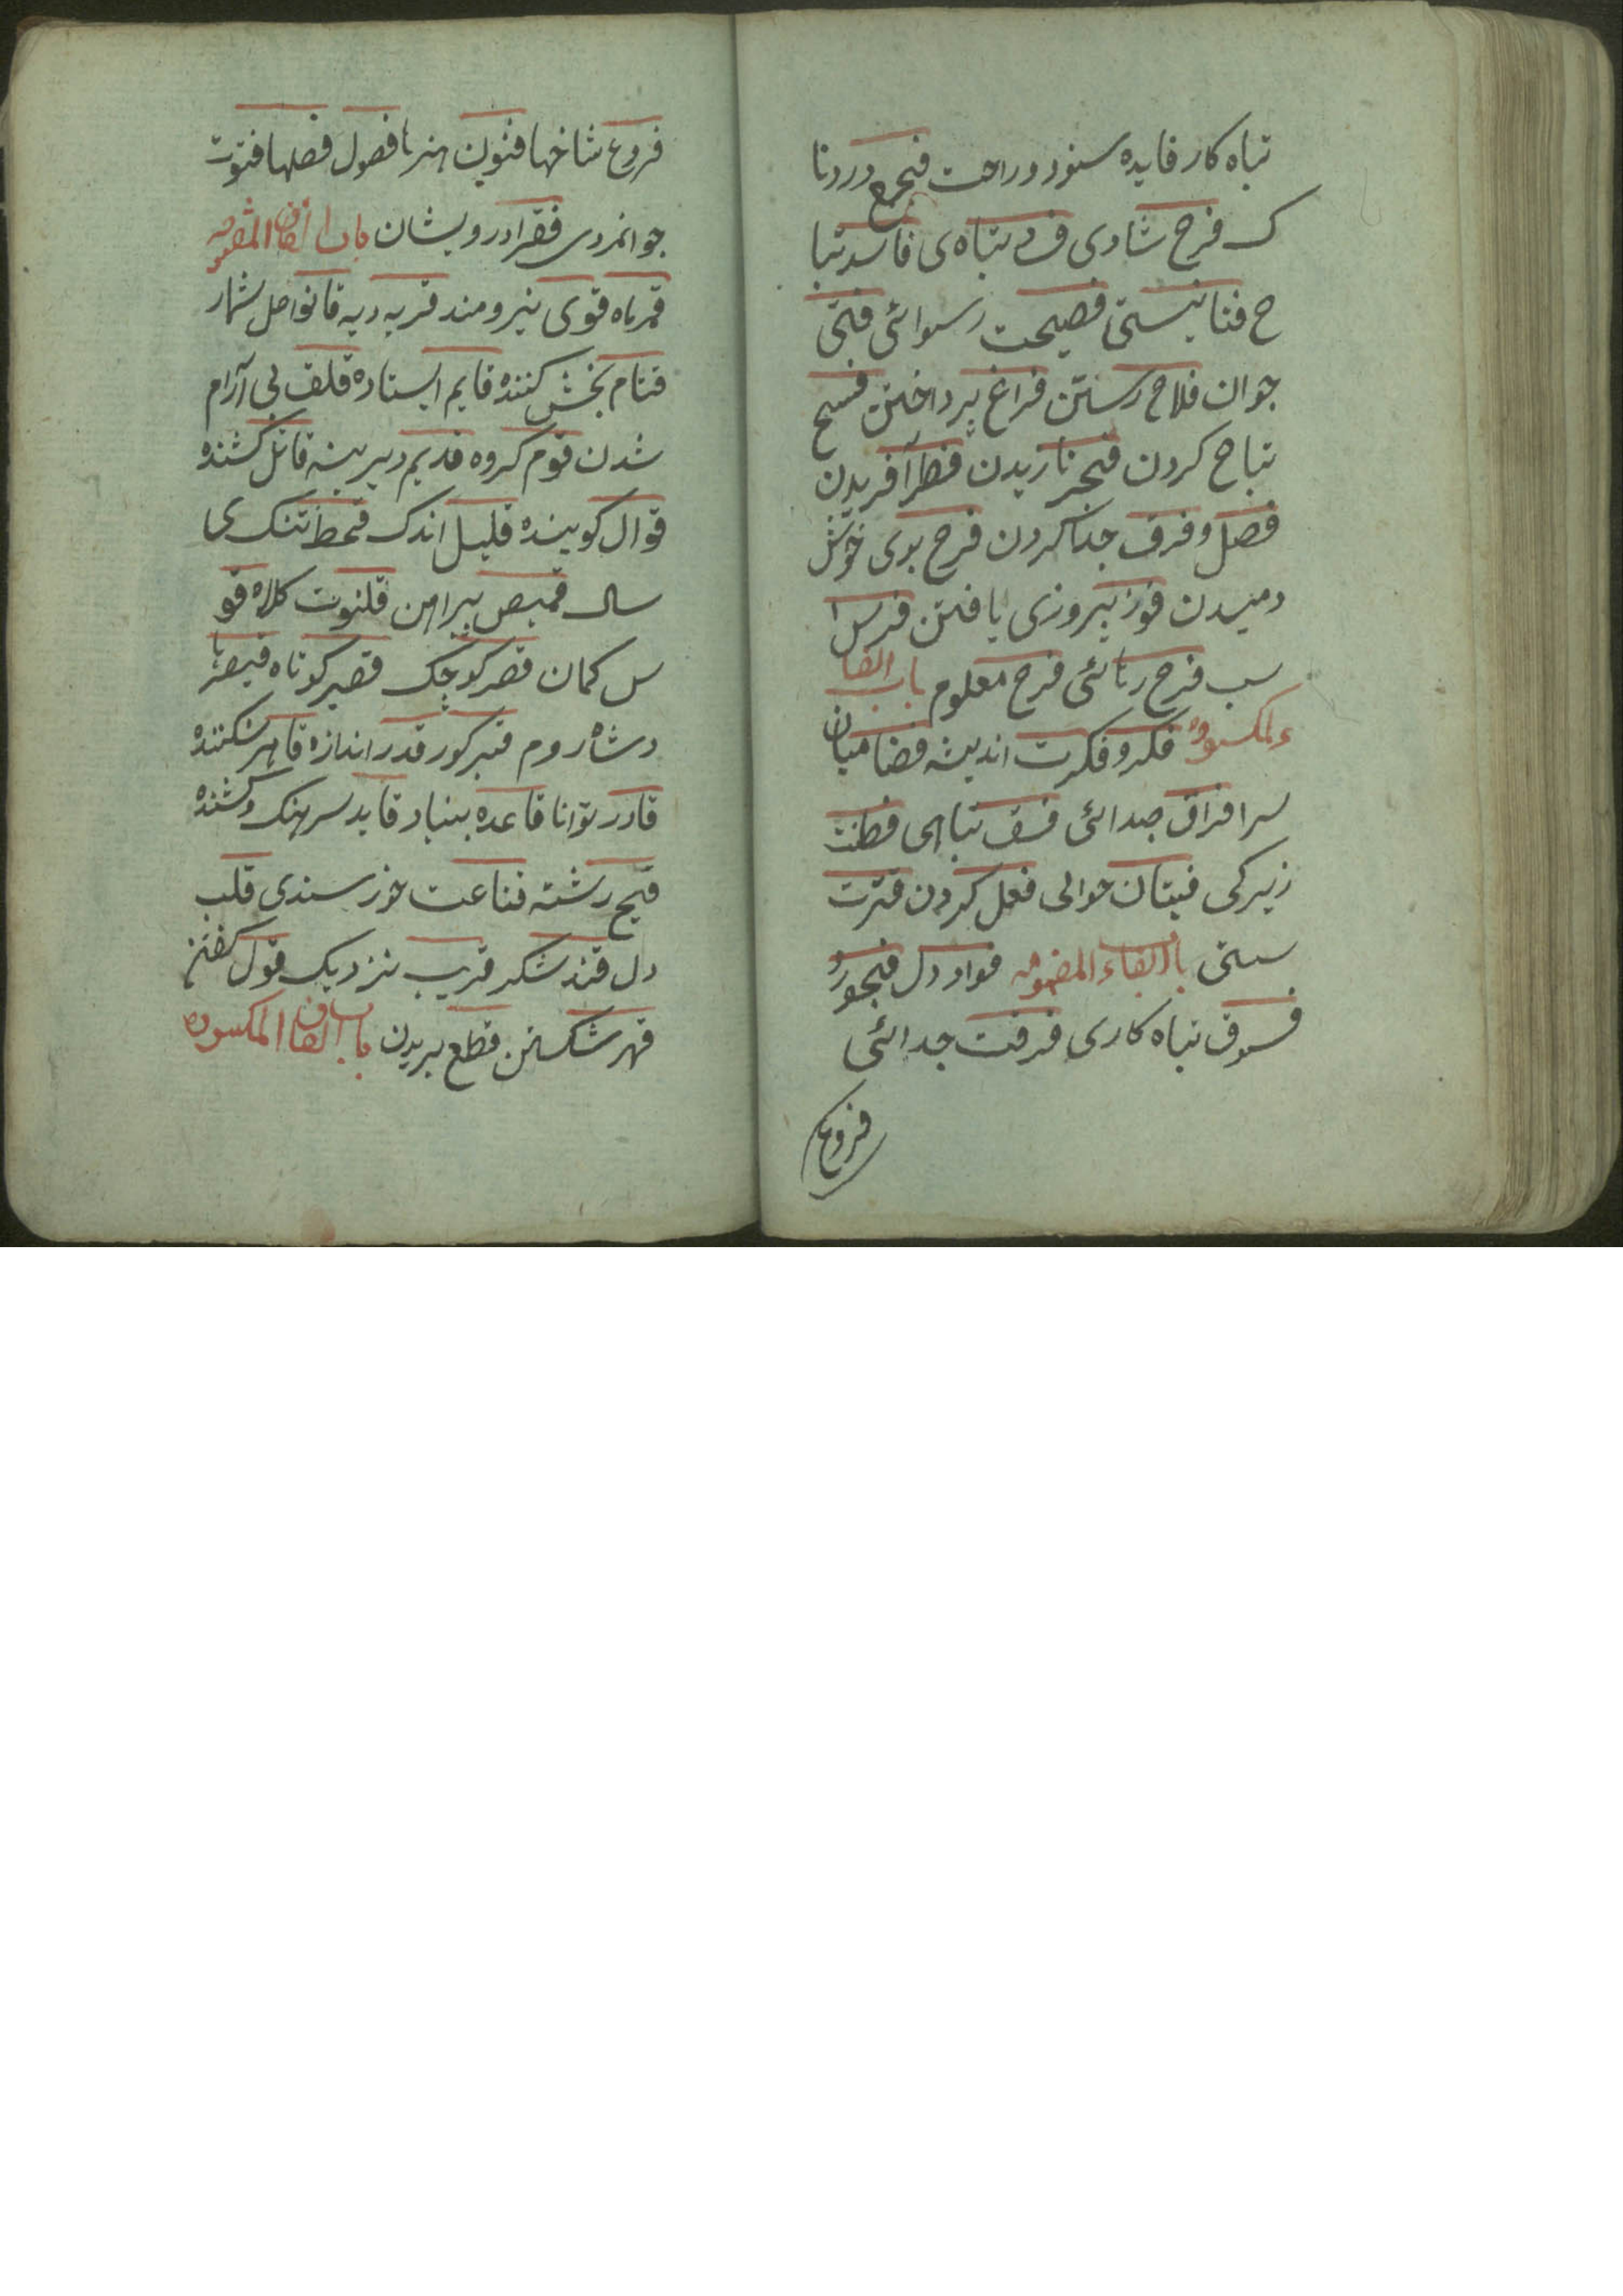 تباه کار فایده سنود و راحت فجع دردنا
ک فرح شادی فساد تباه ی فاسد تبا
ح فنا نیستی فضیحت رسوائی فتی
جوان فلاح رستن فراغ پرداختن فسح
تباح کردن فخر نازیدن فطر آفریدن
فصل و فرق جدا کردن فرح بوی خوش
دمیدن فوز پیروزی یافتن فرس ا
سب فرح رهائی فرح معلوم باب الفا
ء المکسوره فکر و فکرت اندیشه فضا میان
سرا فراق جدائی فسق تباهی فطنت
زیرکی فعل کردن فترت
سستی باب الفاء المضمومه فواد دل فجور و
فسوق تباه کاری فرقت جدائی
فروع
فروع شاخها فنون هنرها فصول فصلها فتوت
جوانمردی فقرا درویشان باب القاف
قمر ماه قوی نیرومند قریه دیه قانون اصل شمار
قسام بخش کننده قایم ایستاده قلق بی آرام
شدن قوم گروه قدیم دیرینه قاتل کشنده
قوال گوینده قلیل اندک قحط تنک ی
سال قمیص پیراهن قلنوت کلاه قو
س کمان قصر کوچک قصیر کوتاه قیصر پا
دشاه روم قبر کور قدر اندازه قاهر شکننده
قادر توانا قاعده بنیاد قاید سرهنگ و کشنده
قبیح رشته قناعت خورسندی قلب
دل قند شکر قریب نزدیک قول گفتن
قهر شکستن قطع بریدن باب القاف المکسوره